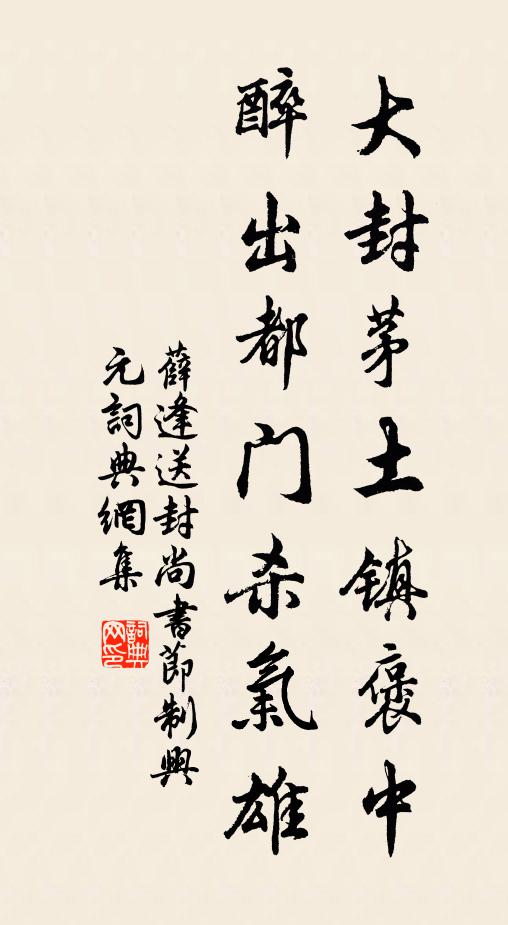 大封茅土鎮褒中
醉出都门杀氣雄
薛逢送封尚書節制興
元詞典網集
詞典
网印